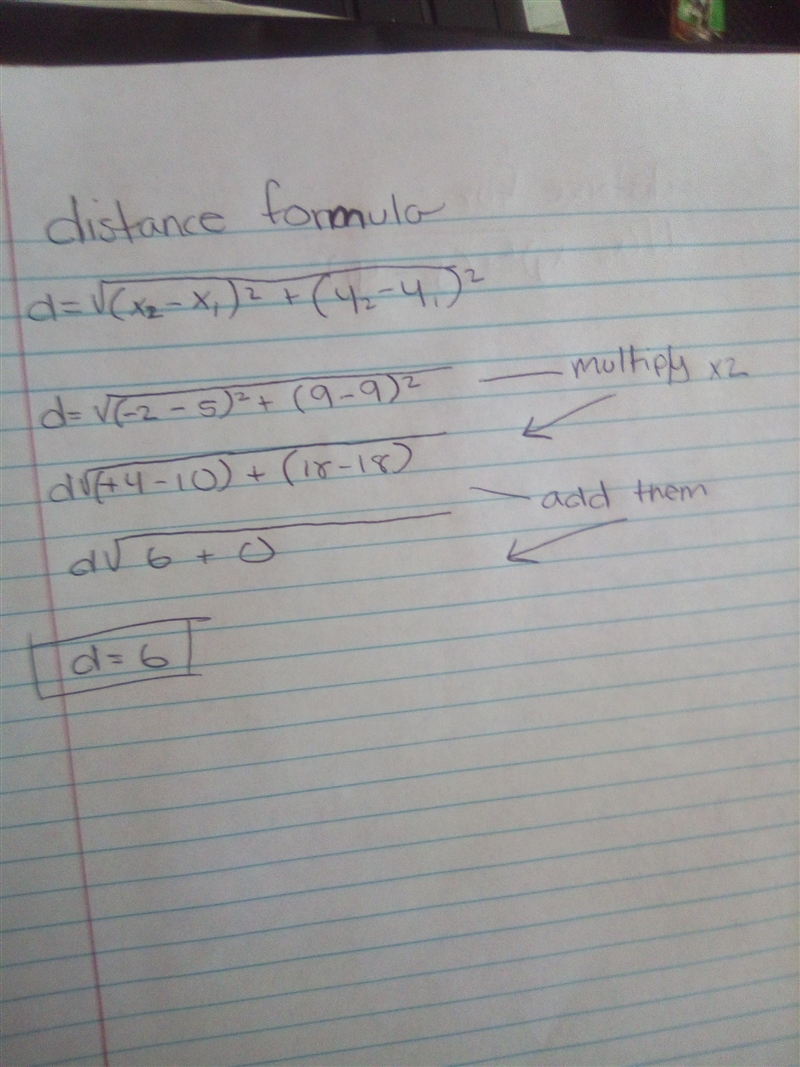 distance formula
d=√(x₂-x₁)² + (y₂-y₁)²
d=√(-2-5)² + (9-9)² — multiply x2
d√(+4-10) + (18-18)
— add them
d√6 + 0
d=6